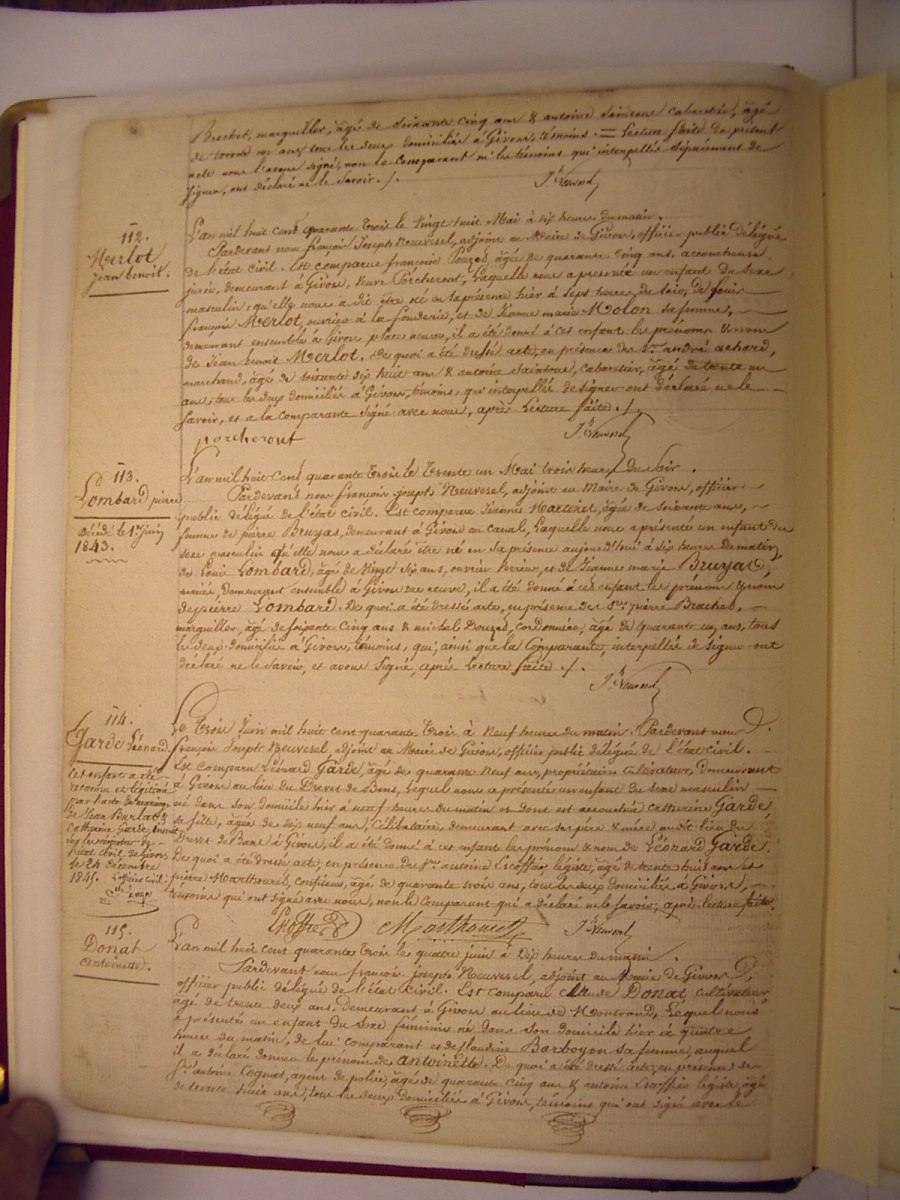 Brachet, marguiller, âgé de soixante cinq ans & antoine Saintour cabaretier, âgé
de trente un ans tous les deux domiciliés à Givors, témoins. = Lecture faite du présent
acte nous l'avons signé, non le Comparant ni les témoins qui interpellés Séparément de
Signer, ont déclaré ne le Savoir ./.
112.
Merlot
jean benoit.
L'an mil huit cent quarante trois le vingt huit Mai à dix heures du matin.
Pardevant nous françois Joseph Neuvesel, adjoint au Maire de Givors, officier public délégué
de l'état civil. Est comparue françoise Pouzet, âgée de quarante cinq ans, accoucheuse
jurée, demeurant à Givors, veuve Porcheront, Laquelle nous a présenté un enfant du Sexe
masculin, qu'elle nous a dit être né en sa présence hier à Sept heures du Soir, de
françois Merlot, ouvrier à la fonderie, et de Jeanne marie Molon sa femme,
demeurant ensemble à Givors place neuve, il a été donné à cet enfant les prénoms & nom
de Jean benoit Merlot. De quoi a été dressé acte, en présence des Srs andré achard,
marchand, âgé de soixante dix huit ans & antoine Saintour, cabaretier, âgé de trente un
ans, tous les deux domiciliés à Givors, témoins, qui interpellés de signer ont déclaré ne le
Savoir, et a la comparante Signé avec nous, après Lecture faite ./.
porcheront
113.
Lombard pierre
Décédé le 1er juin
1843.
L'an mil huit cent quarante trois le trente un Mai trois heures du Soir.
Pardevant nous françois joseph Neuvesel, adjoint au Maire de Givors, officier
public délégué de l'état civil. Est comparue Jeanne âgée de Soixante ans,
femme de pierre Bruyas, demeurant à Givors au Canal, Laquelle nous a présenté un enfant du
sexe masculin qu'elle nous a déclaré être né en sa présence aujourd'hui à dix heures du matin,
de Louis Lombard, âgé de vingt Six ans, ouvrier Verrier, et de Jeanne marie Bruyas,
mariés, demeurant ensemble à Givors rue neuve, il a été donné à cet enfant les prénom & nom
de pierre Lombard. De quoi a été dressé acte, en présence des Srs pierre Brachet,
marguiller, âgé de soixante Cinq ans & michel Douzet, Cordonnier, âgé de quarante un ans, tous
les deux domiciliés à Givors, témoins, qui, ainsi que la Comparante, interpellés de Signer ont
déclaré ne le Savoir, et avons Signé, après Lecture faite ./.
114.
Garde Léonard
Cet enfant a été
reconnu et légitimé
par l'acte de mariage
de Jean Burlat &
Catherine Garde, inscrit
sur les registres de
l'état civil de Givors
le 24 Décembre
1845. L'officier civil
Le Trois Juin mil huit cent quarante Trois à Neuf heures du matin. Pardevant nous
françois Joseph Neuvesel adjoint au Maire de Givors, officier public délégué de l'état civil.
Est comparu Léonard Garde, âgé de quarante Neuf ans, propriétaire Cultivateur, demeurant
à Givors au lieu du Drevet de Bans, Lequel nous a présenté un enfant du sexe masculin
né dans Son domicile hier à neuf heures du matin et dont est accouchée Catherine Garde,
sa fille, âgée de dix neuf ans, Célibataire, demeurant avec ses père & mère audit lieu du
Drevet de Bans à Givors, il a été donné à cet enfant les prénom & nom de Léonard Garde.
De quoi a été dressé acte, en présence des Srs antoine Escoffier légiste, âgé de trente huit ans et
pierre Marthouret, confiseur, âgé de quarante trois ans, tous les deux domiciliés à Givors,
témoins qui ont signé avec nous, non le Comparant qui a déclaré ne le Savoir, après lecture faite.
Escoffier Marthouret
115.
Donat
Antoinette.
L'an mil huit cent quarante trois le quatre juin à Dix heures du matin.
Pardevant nous françois joseph Neuvesel, adjoint au Maire de Givors,
officier public délégué de l'état civil. Est comparu Claude Donat, cultivateur
âgé de trente deux ans, Demeurant à Givors au lieu de Montrond, Lequel nous
a présenté un enfant du Sexe féminin né dans Son domicile hier à quatre
heures du matin, de lui comparant et de Claudine Barboyon sa femme, auquel
il a déclaré donner le prénom de Antoinette. De quoi a été dressé acte, en présence des
Srs antoine Cognat, agent de police, âgé de quarante cinq ans & antoine Escoffier légiste, âgé
de trente huit ans, tous les deux domiciliés à Givors, témoins qui ont signé avec le